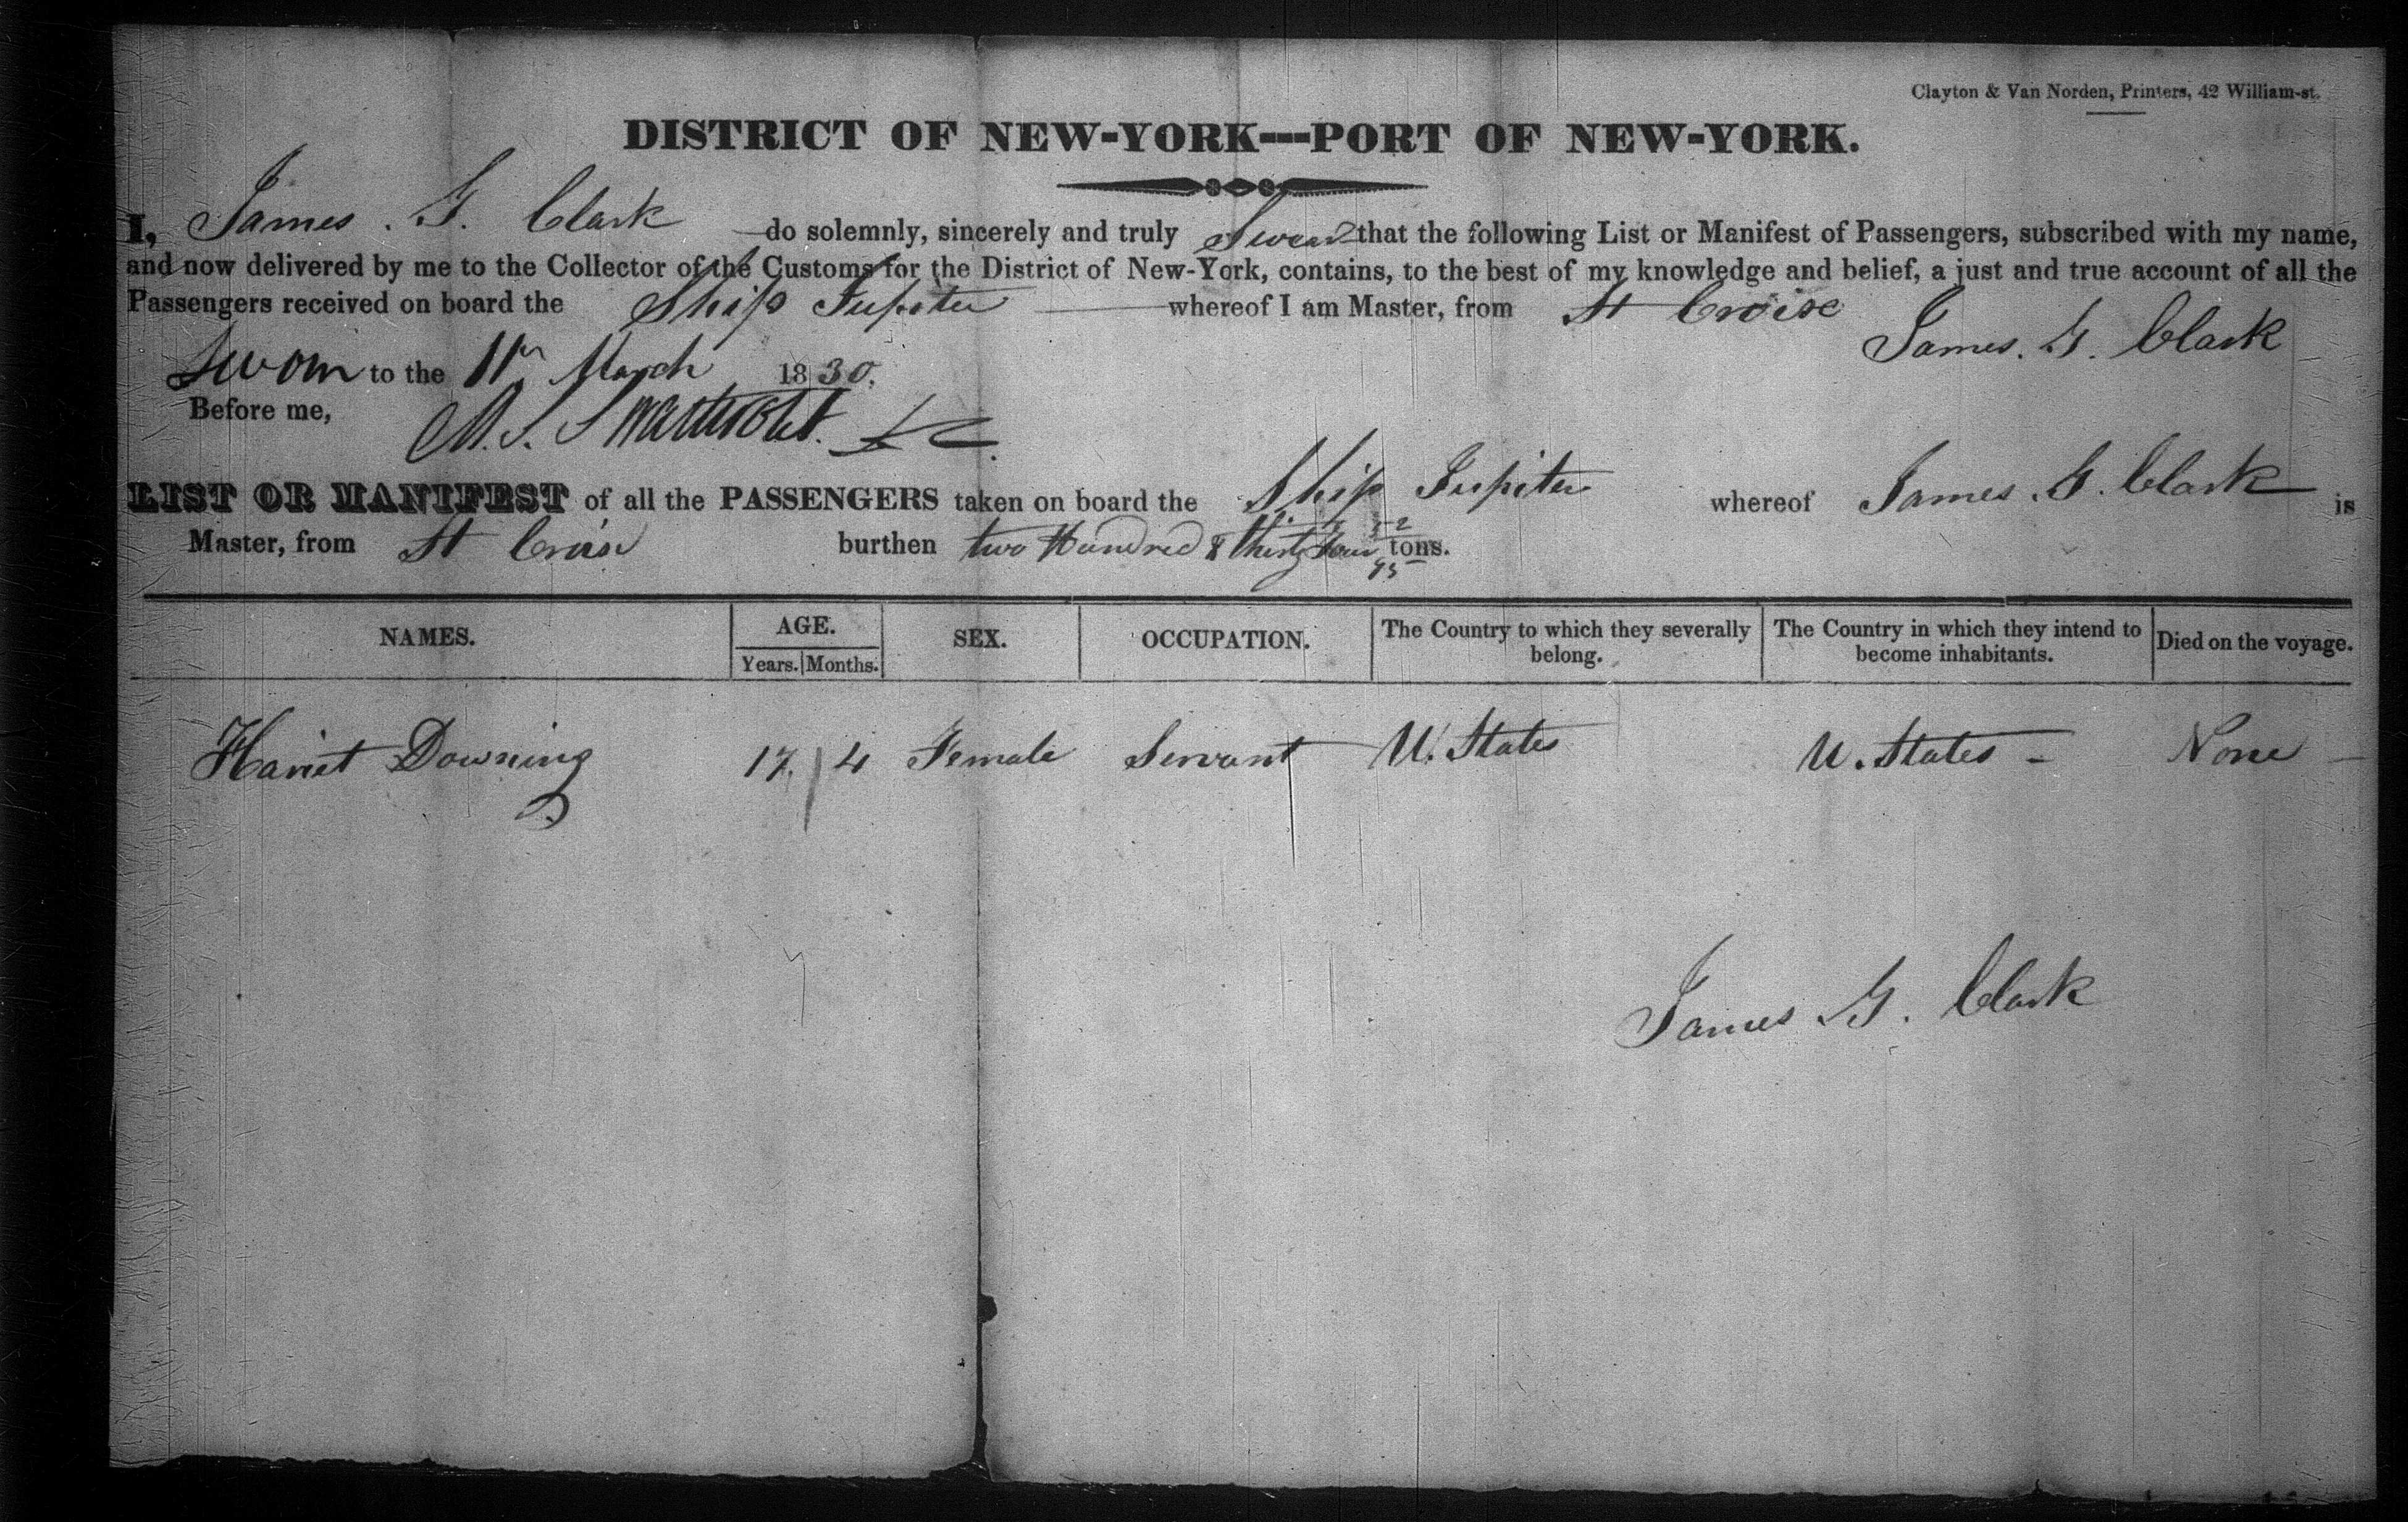 Clayton & Van Norden, Printers, 42 William-st.
DISTRICT OF NEW-YORK---PORT OF NEW-YORK.
I, James. G. Clark do solemnly, sincerely and truly Swear that the following List or Manifest of Passengers, subscribed with my name,
and now delivered by me to the Collector of the Customs for the District of New-York, contains, to the best of my knowledge and belief, a just and true account of all the
Passengers received on board the Ship Jupiter whereof I am Master, from St Croise
James. G. Clark
Sworn to the 11th March 1830.
Before me,
M. S. Swartwout.
LIST OR MANIFEST of all the PASSENGERS taken on board the Ship Jupiter whereof James. G. Clark is
Master, from St Croix burthen two Hundred & thirty four 52/95 tons.
NAMES. AGE. SEX. OCCUPATION. The Country to which they severally belong. The Country in which they intend to become inhabitants. Died on the voyage.
Years. Months.
Harriet Downing 17 4 Female Servant U. States U. States - None
James G. Clark